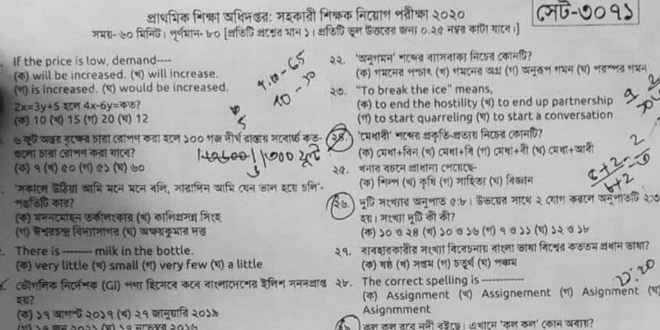 প্রাথমিক শিক্ষা অধিদপ্তর: সহকারী শিক্ষক নিয়োগ পরীক্ষা ২০২০
সেট-৩০৭১
সময়- ৬০ মিনিট। পূর্ণমান- ৮০ [প্রতিটি প্রশ্নের মান ১। প্রতিটি ভুল উত্তরের জন্য ০.২৫ নম্বর কাটা যাবে।]
If the price is low, demand----
(ক) will be increased. (খ) will increase.
(গ) is increased. (ঘ) would be increased.
2x=3y+5 হলে 4x-6y=কত?
(ক) 10 (খ) 15 (গ) 20 (ঘ) 12
৬ ফুট অন্তর বৃক্ষের চারা রোপণ করা হলে ১০০ গজ দীর্ঘ রাস্তায় সর্বোচ্চ কত-
গুলো চারা রোপণ করা যাবে?
(ক) ৭ (খ) ৫০ (গ) ৫১ (ঘ) ৬০
'সকালে উঠিয়া আমি মনে মনে বলি, সারাদিন আমি যেন ভাল হয়ে চলি'-
পঙক্তিটি কার?
(ক) মদনমোহন তর্কালংকার (খ) কালিপ্রসন্ন সিংহ
(গ) ঈশ্বরচন্দ্র বিদ্যাসাগর (ঘ) অক্ষয়কুমার দত্ত
There is -------- milk in the bottle.
(ক) very little (খ) small (গ) very few (ঘ) a little
ভৌগলিক নির্দেশক (GI) পণ্য হিসেবে কবে বাংলাদেশের ইলিশ সনদপ্রাপ্ত
হয়?
(ক) ১৭ আগস্ট ২০১৭ (খ) ২৭ জানুয়ারি ২০১৯
২২. 'অনুগমন' শব্দের ব্যাসবাক্য নিচের কোনটি?
(ক) গমনের পশ্চাৎ (খ) গমনের অগ্র (গ) অনুরূপ গমন (ঘ) পরস্পর গমন
২৩. "To break the ice" means,
(ক) to end the hostility (খ) to end up partnership
(গ) to start quarreling (ঘ) to start a conversation
২৪. 'মেধাবী' শব্দের প্রকৃতি-প্রত্যয় নিচের কোনটি?
(ক) মেধা+বিন (খ) মেধা+বি (গ) মেধা+বী (ঘ) মেধা+আবী
২৫. খনার বচনে প্রাধান্য পেয়েছে-
(ক) শিল্প (খ) কৃষি (গ) সাহিত্য (ঘ) বিজ্ঞান
২৬. দুটি সংখ্যার অনুপাত ৫:৮। উভয়ের সাথে ২ যোগ করলে অনুপাতটি ২:৩
হয়। সংখ্যা দুটি কী কী?
(ক) ১০ ও ২৪ (খ) ১০ ও ১৬ (গ) ৭ ও ১১ (ঘ) ১২ ও ১৮
২৭. ব্যবহারকারীর সংখ্যা বিবেচনায় বাংলা ভাষা বিশ্বের কততম প্রধান ভাষা?
(ক) ষষ্ঠ (খ) সপ্তম (গ) চতুর্থ (ঘ) পঞ্চম
২৮. The correct spelling is -----------
(ক) Assignment (খ) Assignement (গ) Asignment (ঘ)
Asignmment